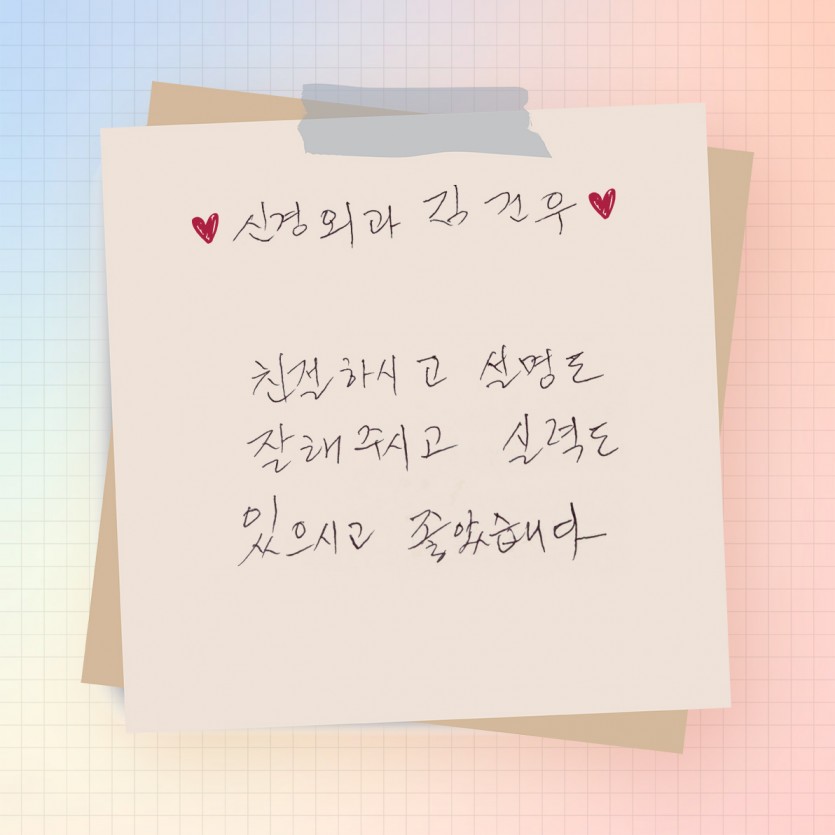 신경외과 김건우
친절하시고 설명도
잘해주시고 실력도
있으시고 좋았습니다